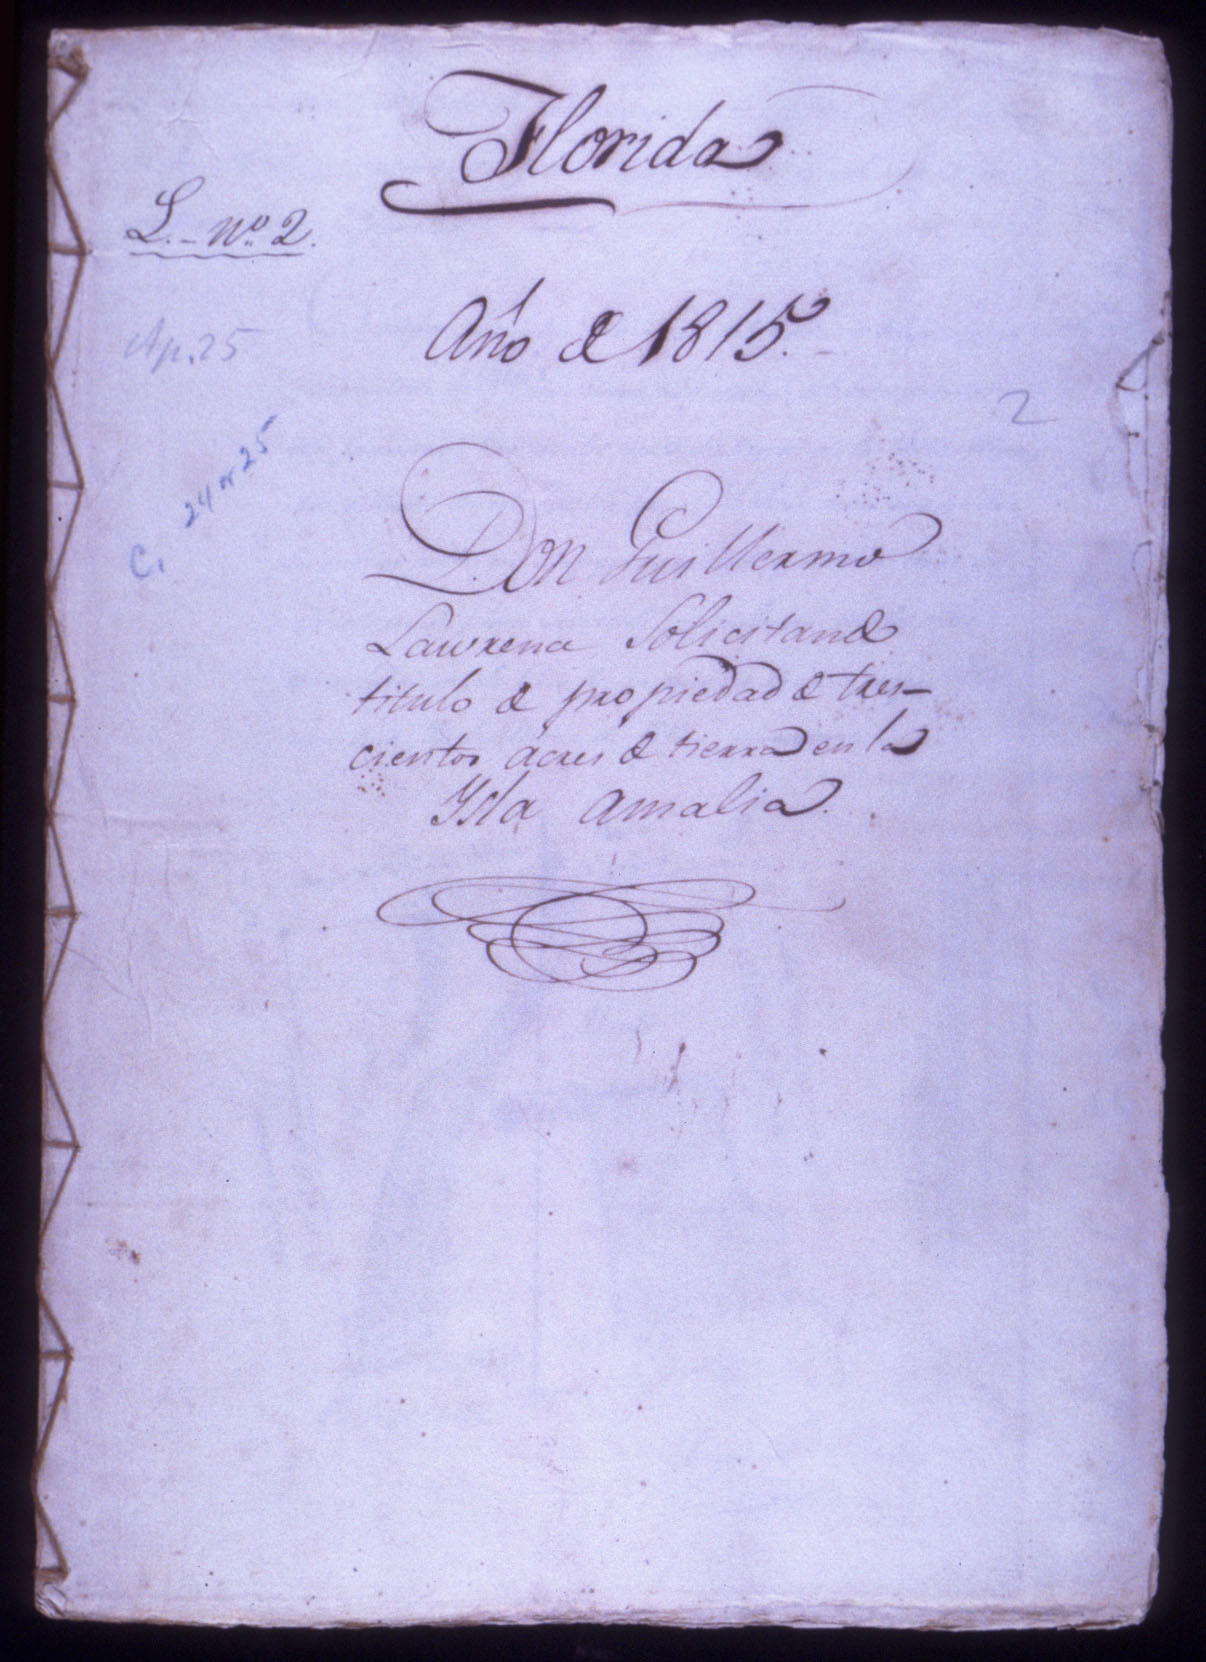 Florida
L. - nº 2.
Año de 1815.
Ap. 25
2
24 or 25
C.
Don Guillermo
Lawrena Solicitando
titulo de propiedad de tres-
cientos acres de tierra en la
Ysla Amalia.